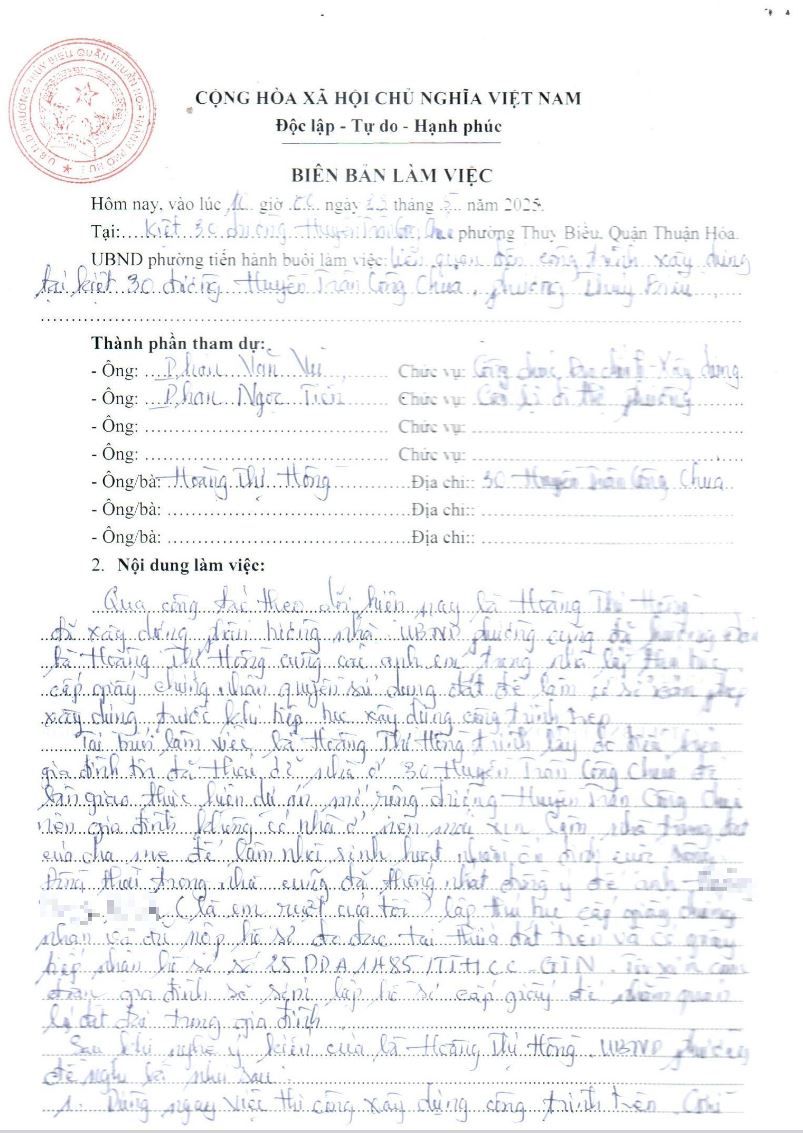 U.B.N.D PHƯỜNG THỦY BIỀU QUẬN THUẬN HÓA THÀNH PHỐ HUẾ
CỘNG HÒA XÃ HỘI CHỦ NGHĨA VIỆT NAM
Độc lập - Tự do - Hạnh phúc
BIÊN BẢN LÀM VIỆC
Hôm nay, vào lúc giờ ngày tháng 5 năm 2025.
Tại: Kiệt 30 đường Huyền Trân Công Chúa phường Thuỷ Biều, Quận Thuận Hóa.
UBND phường tiến hành buổi làm việc: liên quan đến công trình xây dựng
tại kiệt 30 đường Huyền Trân Công Chúa, phường Thủy Biều
Thành phần tham dự:
- Ông: Phan Văn Chức vụ: Công chức địa chính - Xây dựng
- Ông: Phan Ngọc Tiến Chức vụ: Cán bộ đô thị phường
- Ông: Chức vụ:
- Ông: Chức vụ:
- Ông/bà: Hoàng Thị Hồng Địa chỉ:: 30 Huyền Trân Công Chúa
- Ông/bà: Địa chỉ::
- Ông/bà: Địa chỉ::
2. Nội dung làm việc:
Qua công tác theo dõi hiện nay bà Hoàng Thị Hồng
đã xây dựng phần móng nhà UBND phường cũng đã hướng dẫn
bà Hoàng Thị Hồng cùng các anh em trong nhà lập thủ tục
cấp giấy chứng nhận quyền sử dụng đất để làm cơ sở cấp phép
xây dựng trước khi tiếp tục xây dựng công trình trên
Tại buổi làm việc bà Hoàng Thị Hồng trình bày do hiện
gia đình tôi đã tháo dỡ nhà ở 30 Huyền Trân Công Chúa để
bàn giao thực hiện dự án mở rộng đường Huyền Trân Công Chúa
nên gia đình không có nhà ở nên mới xin làm nhà trong đất
của cha mẹ để làm nơi sinh hoạt nhằm ổn định cuộc sống
Đồng thời trong nhà cũng đã thống nhất đồng ý để anh
(là em ruột của tôi) lập thủ tục cấp giấy chứng
nhận và đã nộp hồ sơ đo đạc tại thửa đất trên và có giấy
tiếp nhận hồ sơ số 25.DDA1485/TTHCC-GTN. Tôi xin cam
đoan gia đình sẽ sớm lập hồ sơ cấp giấy để nhằm quản
lý đất đai trong gia đình
Sau khi nghe ý kiến của bà Hoàng Thị Hồng, UBND phường
đề nghị bà như sau:
1. Dừng ngay việc thi công xây dựng công trình trên. Chỉ